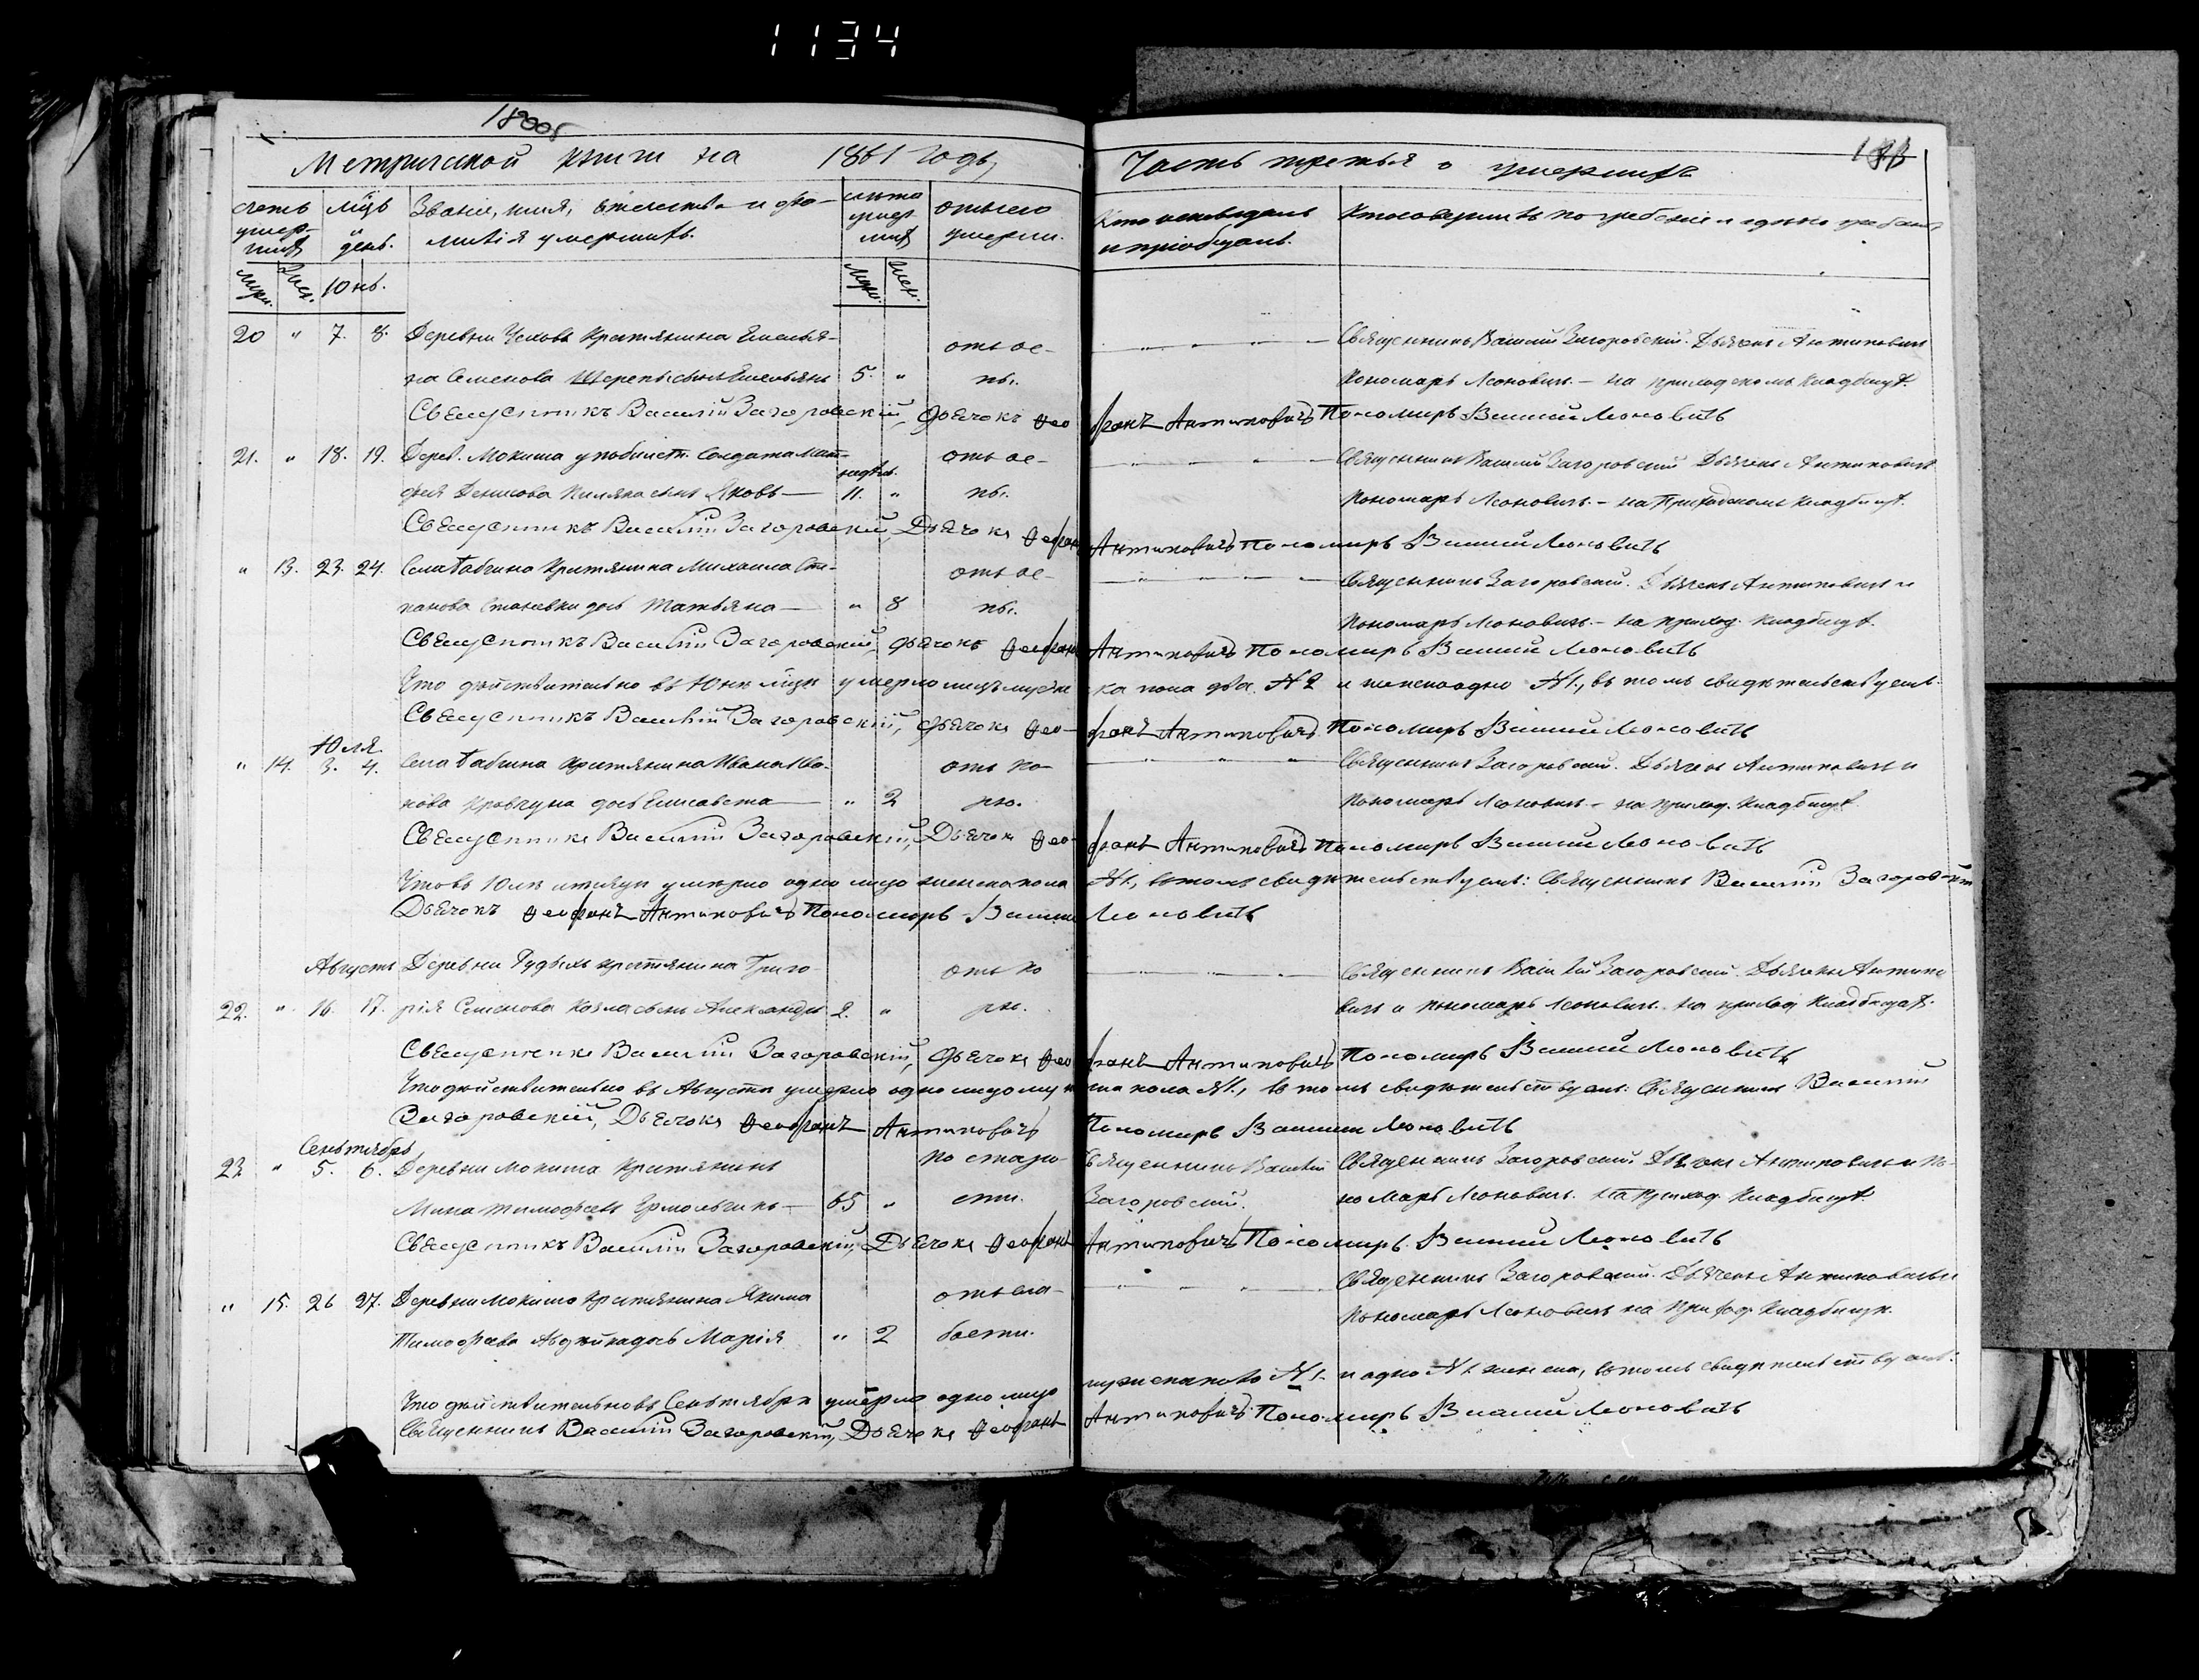 1134
Метрической книги на 1861 годъ,
Часть третья о умершихъ
счетъ умершихъ
мѣсяцъ и день.
Званіе, имя, отчество и фамилія умершихъ.
лѣта умершихъ
отъ чего умерли.
Кто исповѣдалъ и пріобщалъ.
Кто совершилъ погребеніе и гдѣ
муж. жен. Юнь. муж. жен.
20 " 7. 8. Деревни крестьянина Емелья-
отъ ос-
Священникъ Василій Загоровскій. Дьячекъ Антиповичъ
на Семенова сынъ Емельянъ 5. " пы.
Пономарь Леоновичъ. – на приходскомъ кладбищѣ.
Священникъ Василій Загоровскій, Дьячокъ Феофанъ Антиповичъ Пономарь Василій Леоновичъ
21. " 18. 19. Дерев. Мокиша солдата Мат-
отъ ос-
Священникъ Василій Загоровскій Дьячекъ Антиповичъ
фея Денисова сынъ Яковъ — 11. " пы.
Пономарь Леоновичъ. – на Приходскомъ кладбищѣ.
Священникъ Василій Загоровскій, Дьячокъ Феофанъ Антиповичъ Пономарь Василій Леоновичъ
" 13. 23. 24. Села крестьянина Михаила Сте-
отъ ос-
Священникъ Загоровскій. Дьячекъ Антиповичъ и
панова дочь Татьяна — " 8 пы.
Пономарь Леоновичъ. – на приход. кладбищѣ.
Священникъ Василій Загоровскій, Дьячокъ Феофанъ Антиповичъ Пономарь Василій Леоновичъ
Что дѣйствительно въ Юнѣ мѣсяцѣ умерло лицъ мужеска пола два № 2 и женска одно № 1., въ томъ свидѣтельствуемъ.
Священникъ Василій Загоровскій, Дьячокъ Феофанъ Антиповичъ Пономарь Василій Леоновичъ
Юля.
" 14. 3. 4. Села крестьянина Ивана Ива-
отъ ко-
Священникъ Загоровскій. Дьячекъ Антиповичъ и
нова Кравчука дочь Елисавета — " 2 рю.
Пономарь Леоновичъ – на приход. кладбищѣ.
Священникъ Василій Загоровскій, Дьячокъ Феофанъ Антиповичъ Пономарь Василій Леоновичъ
Что въ Юлѣ мѣсяцѣ умерло одно лицо женска пола № 1., въ томъ свидѣтельствуемъ: Священникъ Василій Загоровскій
Дьячокъ Феофанъ Антиповичъ Пономарь Василій Леоновичъ
Августъ Деревни крестьянина Григо-
отъ ко
Священникъ Василій Загоровскій. Дьячекъ Антипо
22. " 16. 17. рія Семенова сынъ Александръ 2. " рю.
вичъ и Пономарь Леоновичъ. на приход. кладбищѣ.
Священникъ Василій Загоровскій, Дьячокъ Феофанъ Антиповичъ Пономарь Василій Леоновичъ
Что дѣйствительно въ Августѣ умерло одно лицо мужеска пола № 1., въ томъ свидѣтельствуемъ: Священникъ Василій
Загоровскій, Дьячокъ Феофанъ Антиповичъ Пономарь Василій Леоновичъ
Сентябрь
23 " 5. 6. Деревни Мокиша крестьянинъ
по старо-
Священникъ Василій
Священникъ Загоровскій Дьячекъ Антиповичъ и По-
Мина Тимофеевъ — 65 " сти.
Загоровскій.
номарь Леоновичъ. На приход. кладбищѣ.
Священникъ Василій Загоровскій, Дьячокъ Феофанъ Антиповичъ Пономарь Василій Леоновичъ
" 15. 26 27. Деревни Мокиша крестьянина Якима
отъ сла-
Священникъ Загоровскій. Дьячекъ Антиповичъ и
Тимофеева дочь Марія " 2 бости.
Пономарь Леоновичъ на приход. кладбищѣ.
Что дѣйствительно въ Сентябрѣ умерло одно лицо мужеска пола № 1. и одно № 1. женска, въ томъ свидѣтельствуемъ:
Священникъ Василій Загоровскій, Дьячокъ Феофанъ Антиповичъ Пономарь Василій Леоновичъ